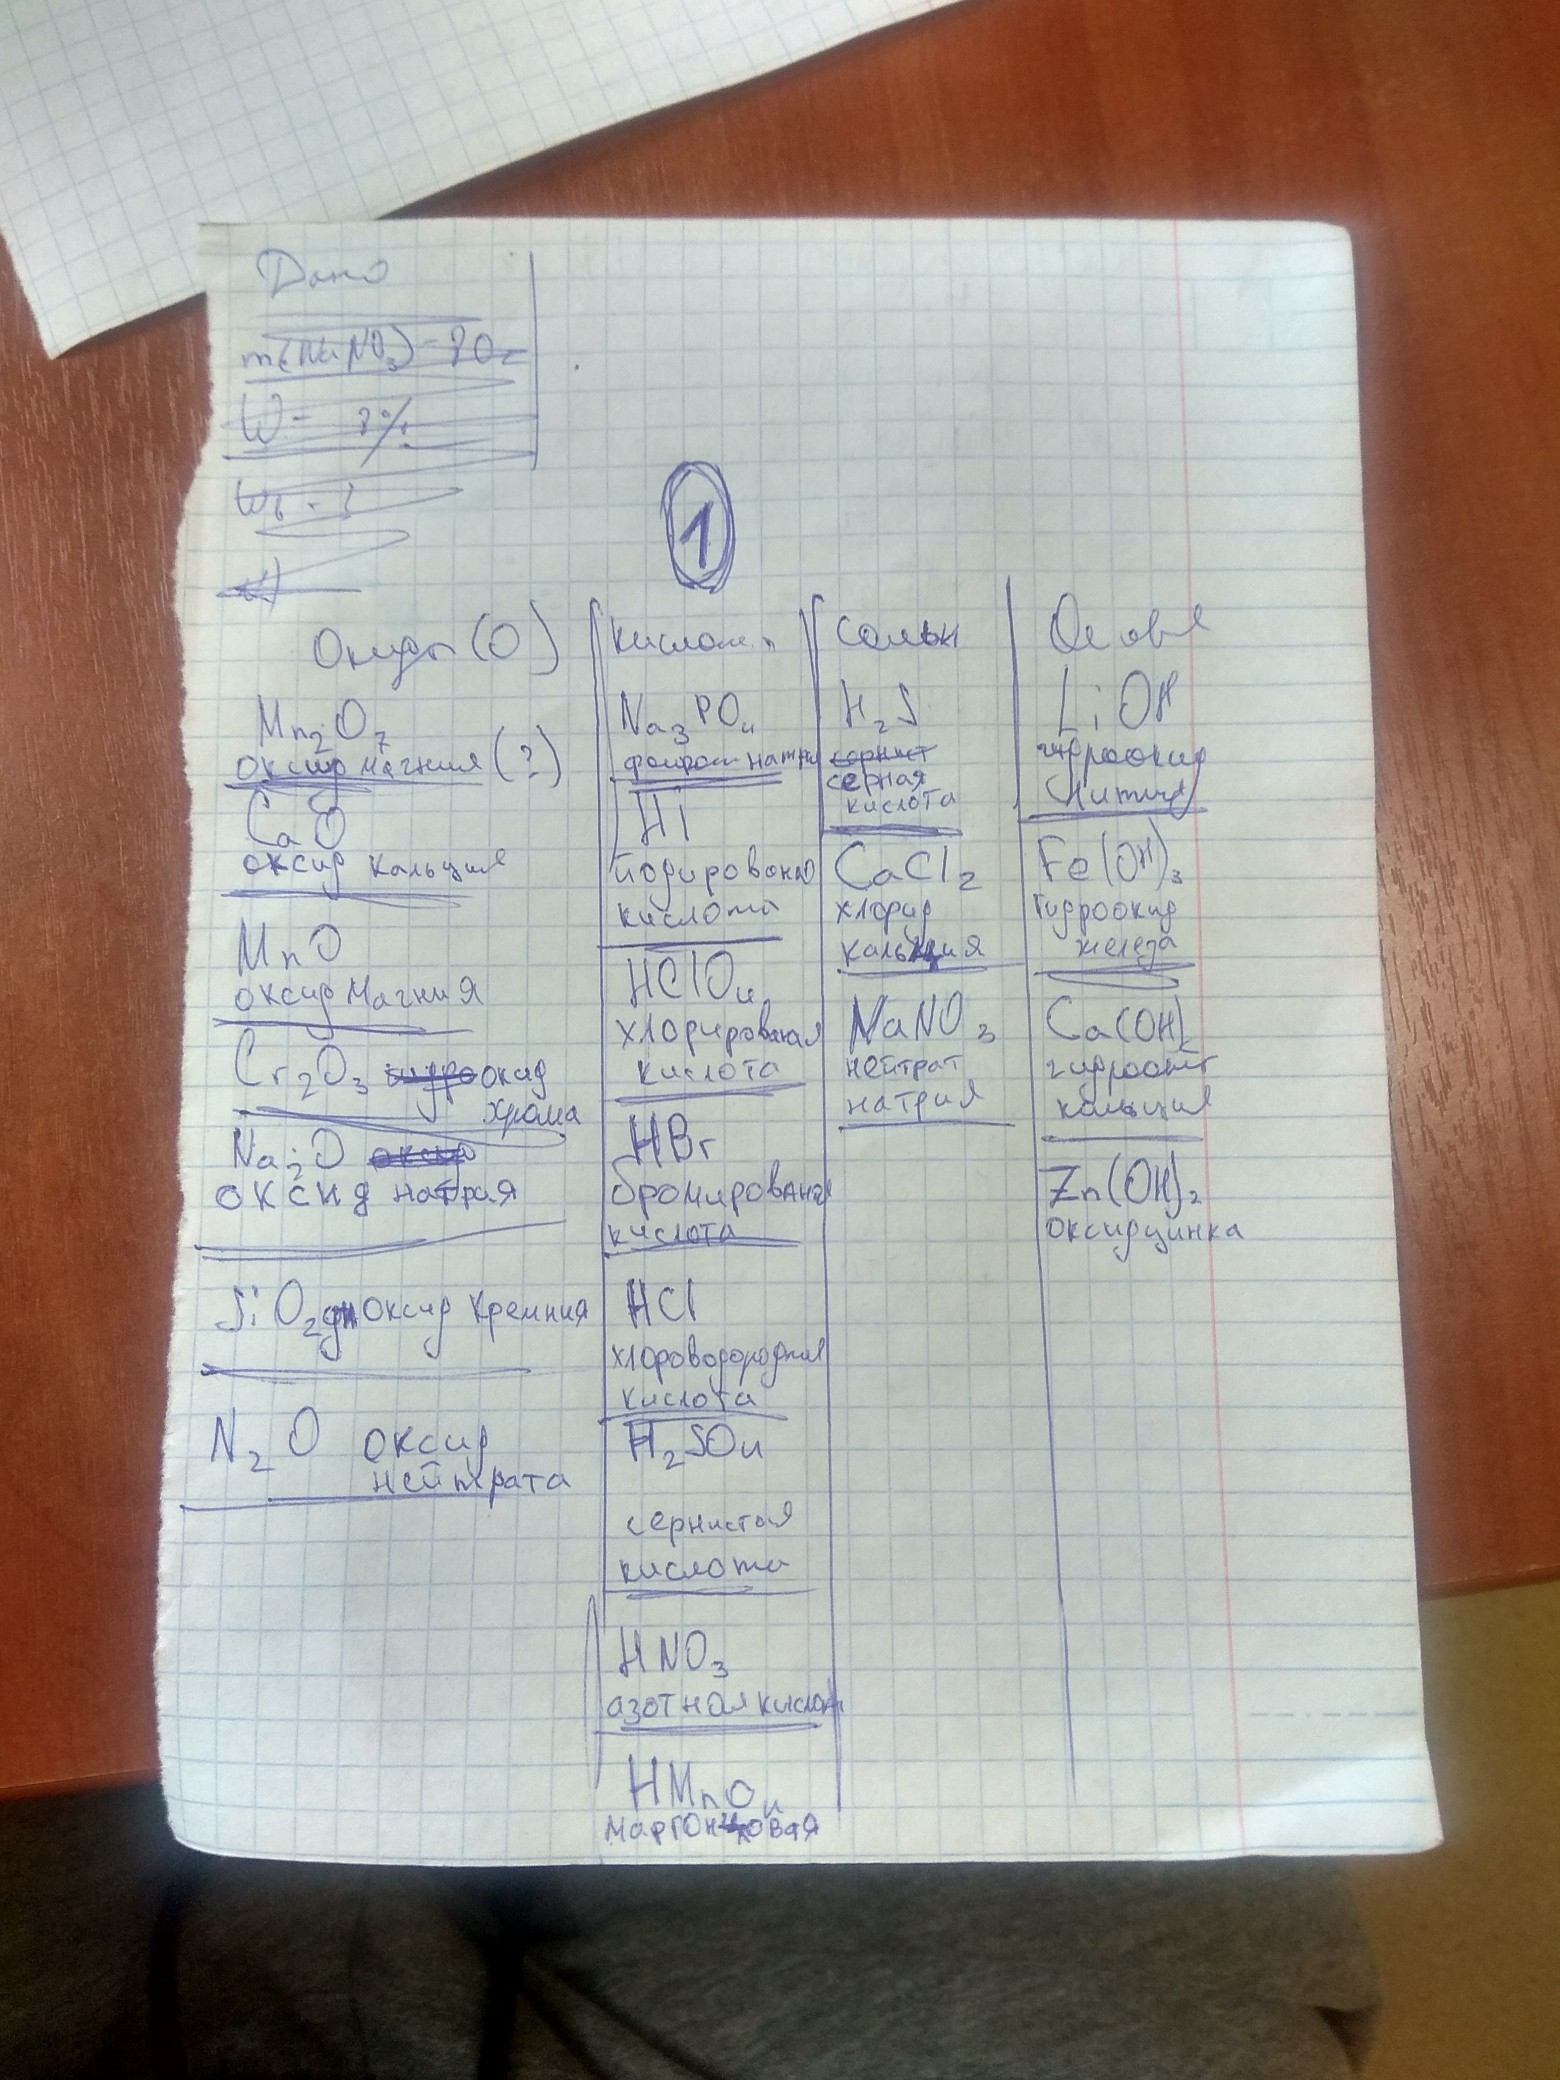 Дано
m(NaNO3) = 80г
W = 8%
1
Оксиды (O)
Mn2O7
оксид магния (?)
CaO
оксид кальция
MnO
оксид магния
Cr2O3 гидро окид
хрома
Na2O оксид
оксид натрия
SiO2 диоксид кремния
N2O оксид
нейтрата
кислоты
Na3PO4
фосфат натри
HI
йодирована
кислота
HClO4
хлорированая
кислота
HBr
бромирования
кислота
HCl
хлороводородная
кислота
H2SO4
сернистая
кислота
HNO3
азотная кислота
HMnO4
марганцовая
H2S
сернист
серная
кислота
CaCl2
хлорид
кальция
NaNO3
нейтрат
натрия
LiOH
гидроокид
лития
Fe(OH)3
Гидроокид
железа
Ca(OH)2
кальция
Zn(OH)2
оксид цинка